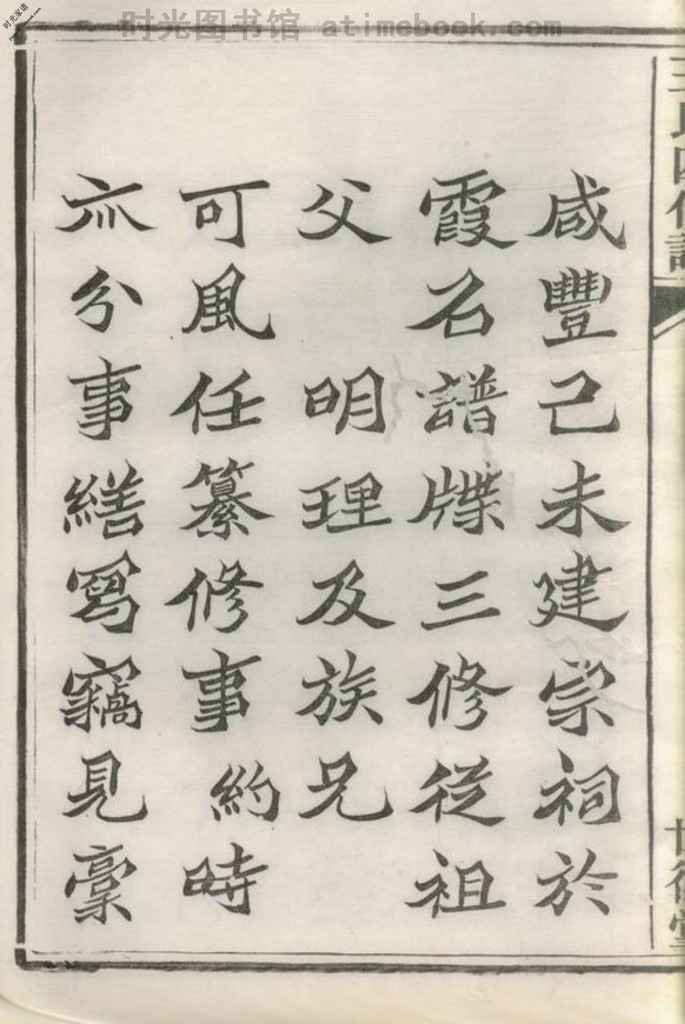 时光图书馆 atimebook.com
咸豐己未建宗祠於
霞名譜牒三修從祖
父 明理及族兄
可風任纂修事 約時
亦分事繕寫竊見稾